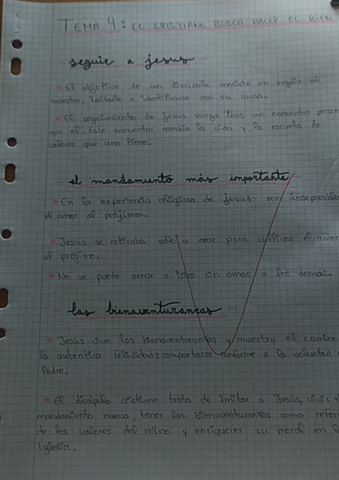 TEMA 4.: EL CRISTIANO BUSCA HACER EL BIEN
seguir a jesus
El objetivo de un discipulo consiste en seguir al
maestro, imitarle e identificarse con su causa.
El seguimiento de Jesus surge tras un encuentro
con el. Este encuentro cambia la vida y la escala de
valores que uno tiene.
el mandamiento más importante
En la experiencia religiosa de Jesus son
el amor al prójimo.
Jesus se retiraba solo a orar para cultivar el amor
al prójimo.
No se puede amar a Dios sin amar a los demás.
las bienaventuranzas
Jesús vive las bienaventuranzas y muestra el camino
la auténtica felicidad: comportarse conforme a la voluntad
Padre.
El discipulo cristiano trata de imitar a Jesús, vivir
mandamiento nuevo, tener las bienaventuranzas como
de los valores del reino y enriquecer su moral en
Iglesia.